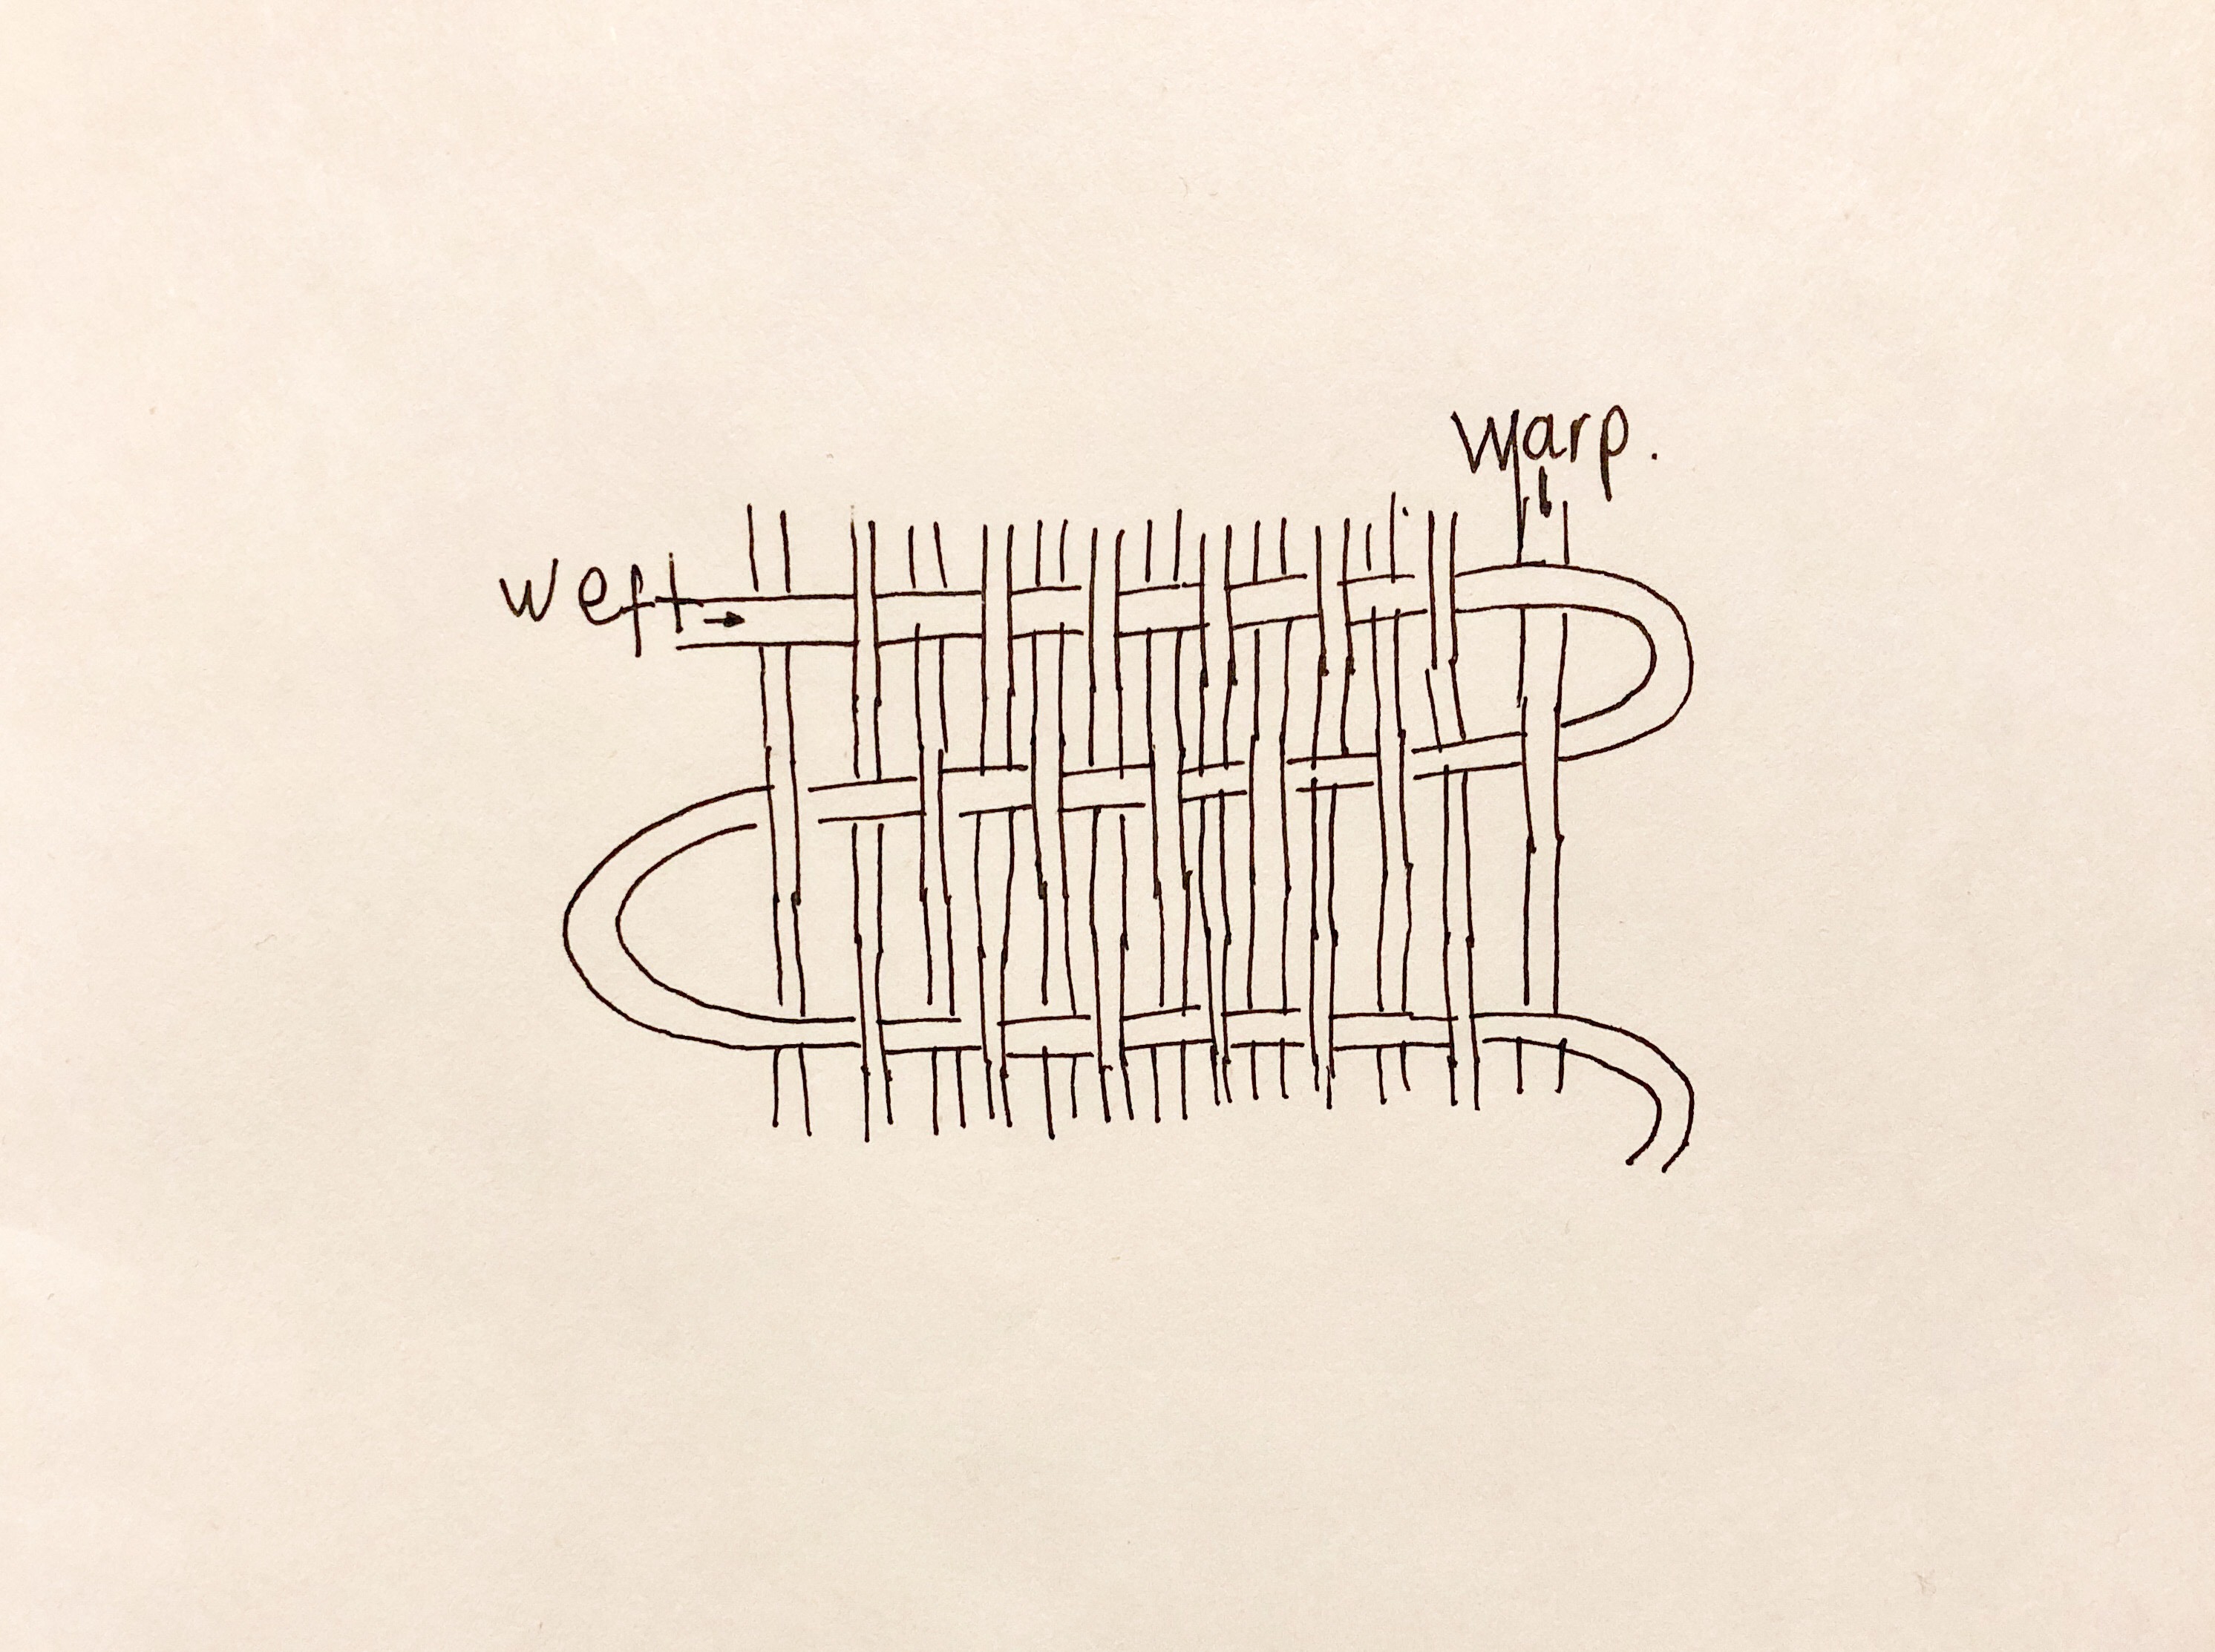 Warp.
weft